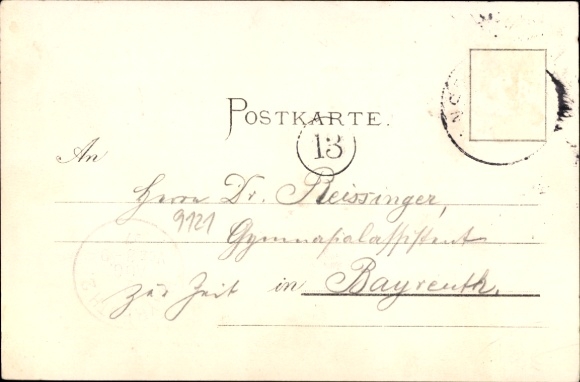 POSTKARTE.
13
An
Herrn Dr. Reissinger,
9121
Gymnasialassistent
zur Zeit in Bayreuth.